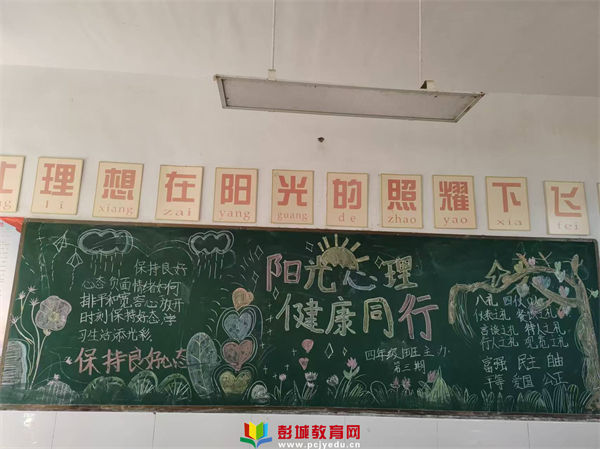 理想在阳光的照耀下飞
li xiang zai yang guang de zhao yao xia fei
保持良好
心态 负面情绪如何
排千和宽容心放开
时刻保持好态，学
习生活添光彩。
保持良好心态
阳光心理
健康同行
四年级四班主办
第三期
八礼四仪
仪表之礼 餐饮之礼
言谈之礼 待人之礼
行人之礼 观赏之礼
富强 民主 自由
平等 爱国 公正
彭城教育网
www.pcjyedu.cn